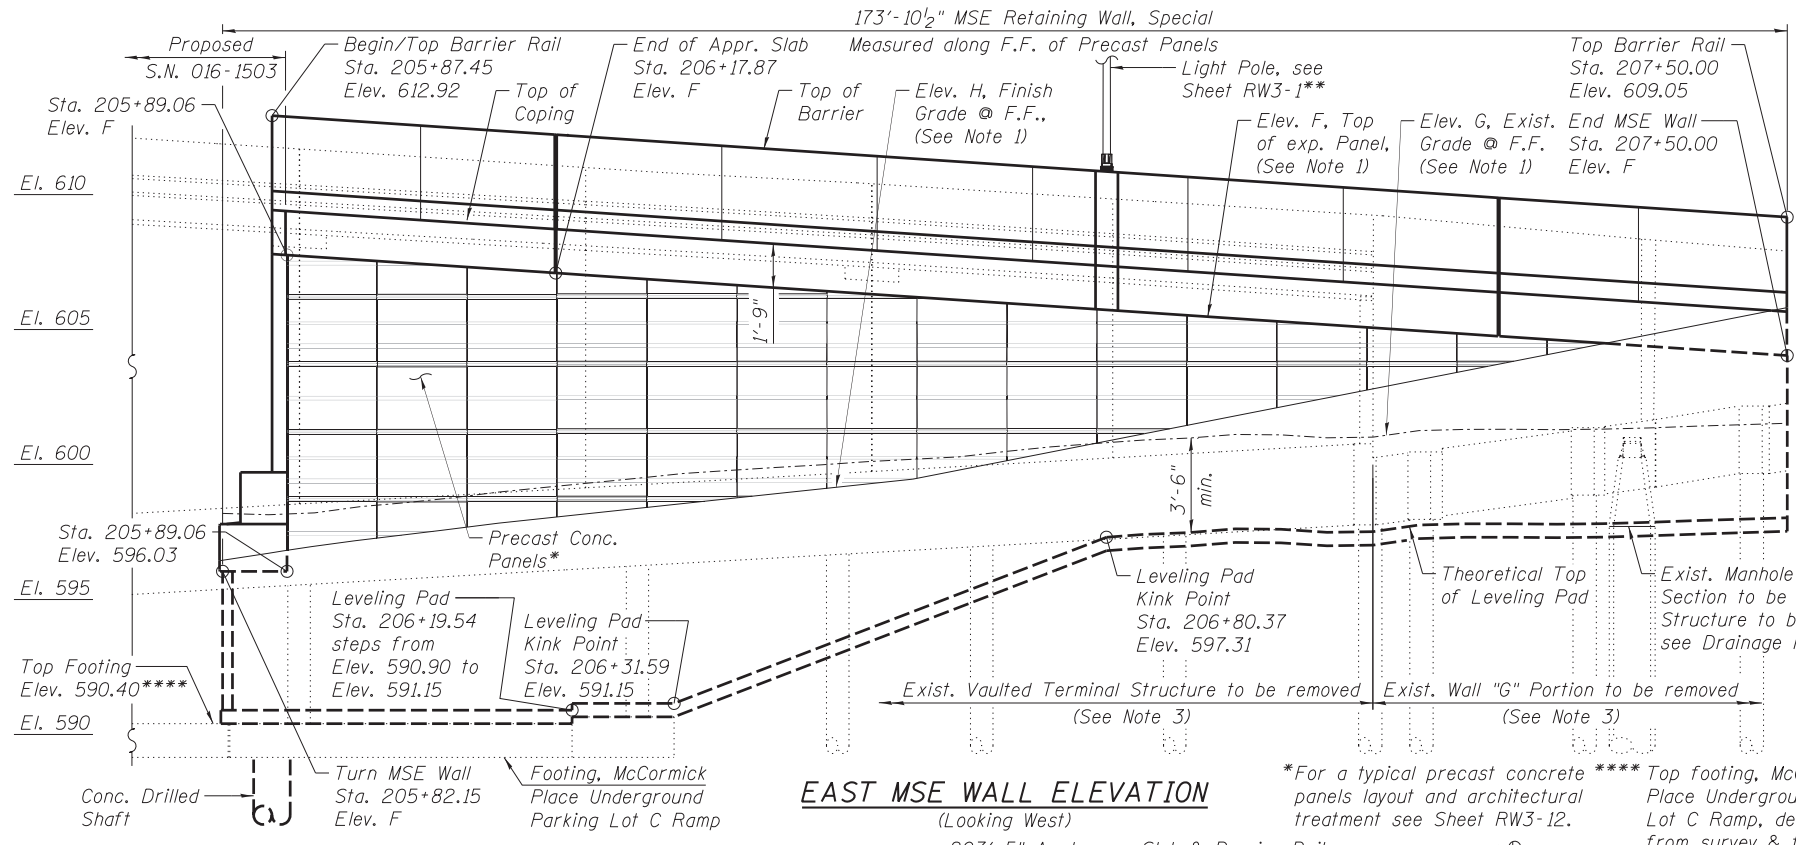 173'-10½" MSE Retaining Wall, Special
Measured along F.F. of Precast Panels
Proposed
S.N. 016-1503
Begin/Top Barrier Rail
Sta. 205+87.45
Elev. 612.92
End of Appr. Slab
Sta. 206+17.87
Elev. F
Top Barrier Rail
Sta. 207+50.00
Elev. 609.05
Sta. 205+89.06
Elev. F
Top of
Coping
Top of
Barrier
Elev. H, Finish
Grade @ F.F.,
(See Note 1)
Light Pole, see
Sheet RW3-1**
Elev. F, Top
of exp. Panel,
(See Note 1)
Elev. G, Exist.
Grade @ F.F.
(See Note 1)
End MSE Wall
Sta. 207+50.00
Elev. F
El. 610
El. 605
El. 600
El. 595
El. 590
1'-9"
3'-6"
min.
Sta. 205+89.06
Elev. 596.03
Precast Conc.
Panels*
Leveling Pad
Sta. 206+19.54
steps from
Elev. 590.90 to
Elev. 591.15
Leveling Pad
Kink Point
Sta. 206+31.59
Elev. 591.15
Leveling Pad
Kink Point
Sta. 206+80.37
Elev. 597.31
Theoretical Top
of Leveling Pad
Exist. Manhole
Section to be
Structure to b
see Drainage
Top Footing
Elev. 590.40****
Exist. Vaulted Terminal Structure to be removed
(See Note 3)
Exist. Wall "G" Portion to be removed
(See Note 3)
Conc. Drilled
Shaft
Turn MSE Wall
Sta. 205+82.15
Elev. F
Footing, McCormick
Place Underground
Parking Lot C Ramp
EAST MSE WALL ELEVATION
(Looking West)
*For a typical precast concrete
panels layout and architectural
treatment see Sheet RW3-12.
**** Top footing, Mc
Place Undergrou
Lot C Ramp, de